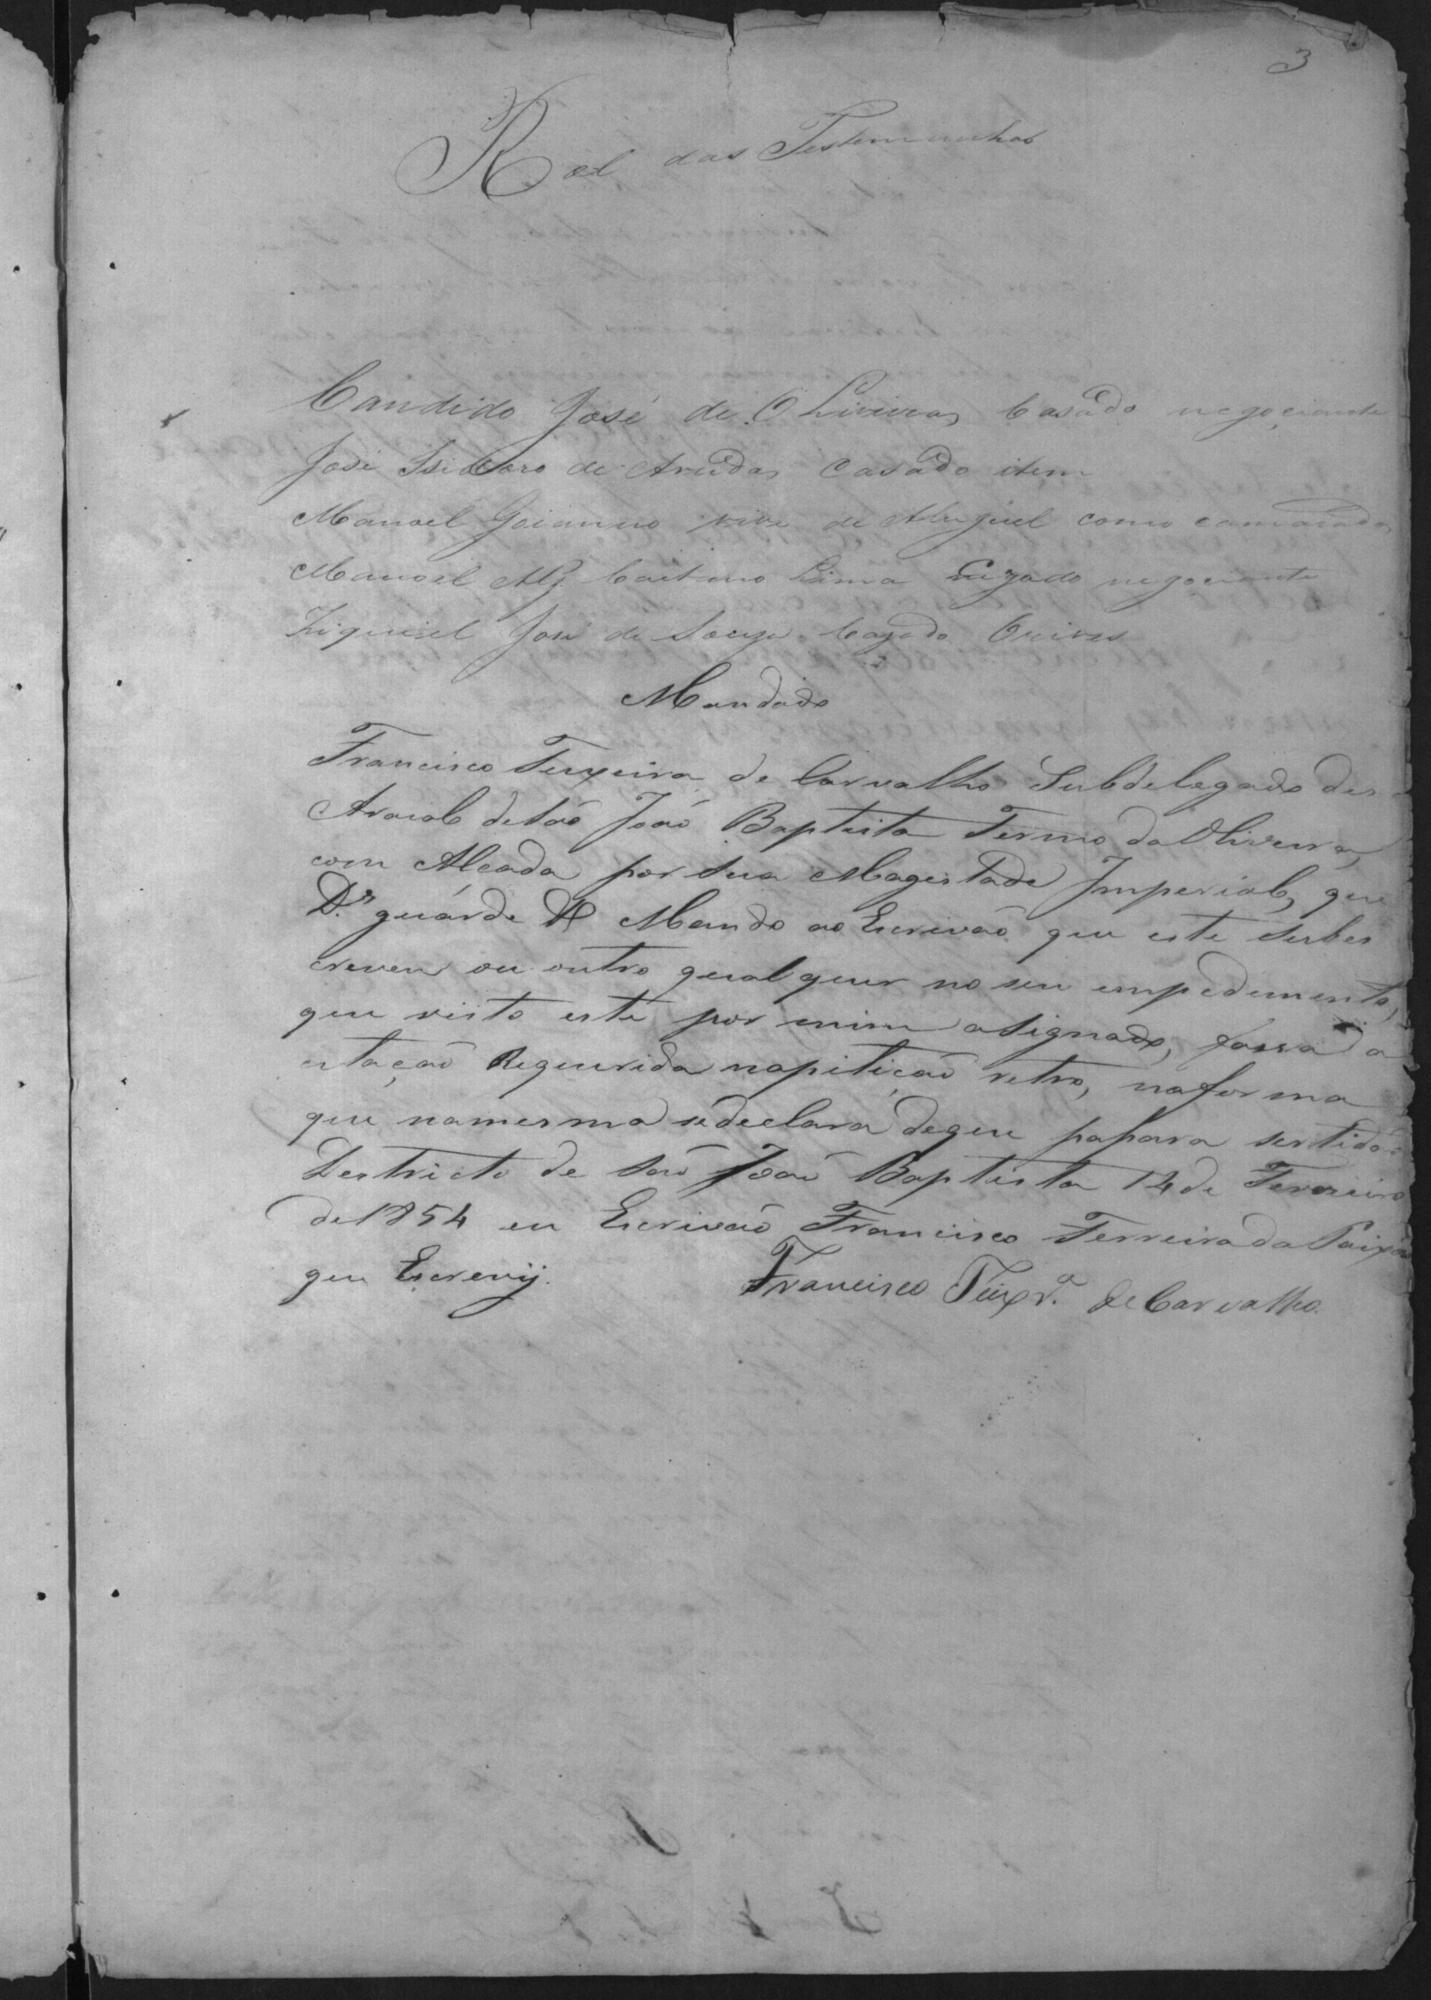 3
Rol das Testemunhas
Candido José de Oliveira, Casado negociante
José Isidoro de Arruda, Casado item
Manoel Goianno vive de Aluguel como camarada
Manoel Alz Caitano Lima Cazado negociante
Ziquiel José de Souza Cazado Orives
Mandado
Francisco Teixeira de Carvalho Subdelegado des
Araial de São João Baptista Termo da Oliveira,
com Alcada por sua Magestade Imperial, que
D.s guarde Mando ao Escrivão que este subes
creveu ou outro qual quer no seu empedimento,
que visto este por mim asignado, fassa a
citação Requerida napitição retro, naforma
que namesma sedeclara deque pasara sertidão
Destricto de São João Baptista 14 de Fevereiro
de 1854 eu Escrivão Francisco Ferreira da Paixão
que Escrevij.
Francisco Teixr.a de Carvalho.